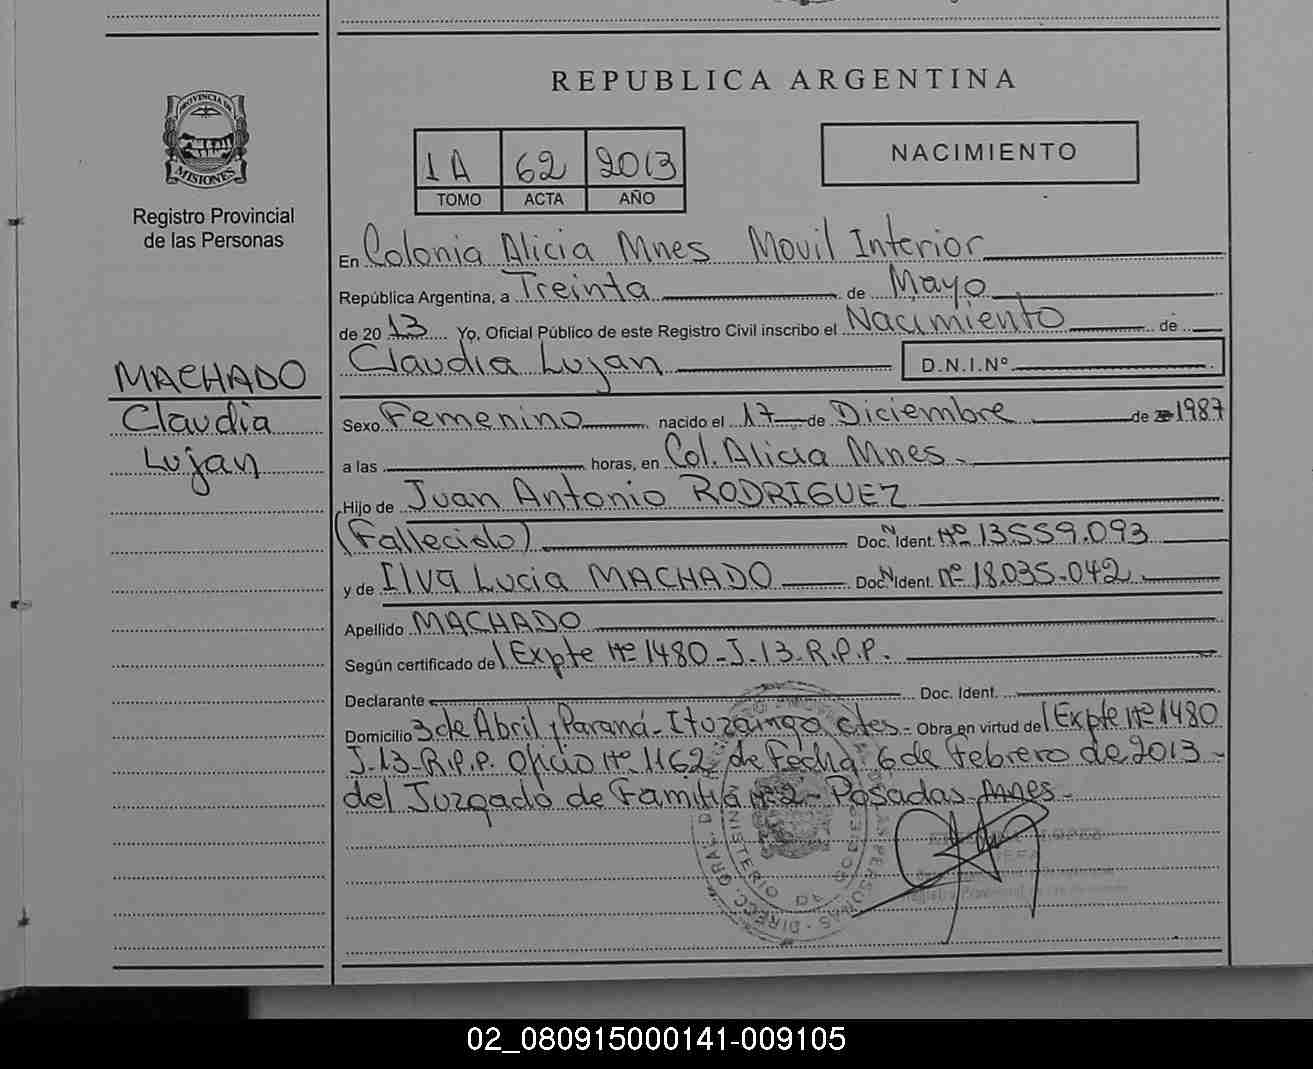 REPUBLICA ARGENTINA
PROVINCIA DE
MISIONES
Registro Provincial
de las Personas
1A 62 2013
TOMO ACTA AÑO
NACIMIENTO
En Colonia Alicia Mnes Movil Interior
República Argentina, a Treinta de Mayo
de 2013 Yo, Oficial Público de este Registro Civil inscribo el Nacimiento de
Claudia Lujan D.N.I.Nº
MACHADO
Claudia
Lujan
Sexo Femenino nacido el 17 de Diciembre de 1987
a las horas, en Col. Alicia Mnes.
Hijo de Juan Antonio RODRIGUEZ
(Fallecido) Doc. Ident. Nº 13.559.093
y de Ilva Lucia MACHADO Doc. Ident. nº 18.035.042
Apellido MACHADO
Según certificado de Expte Nº 1480-J-13-R.P.P.
Declarante Doc. Ident.
Domicilio 3 de Abril y Paraná - Ituzaingo ctes. - Obra en virtud del Expte Nº 1480
J-13-R.P.P. Oficio Nº 1162 de Fecha 6 de Febrero de 2013 -
del Juzgado de Familia Nº 2 - Posadas Mnes -
02_080915000141-009105